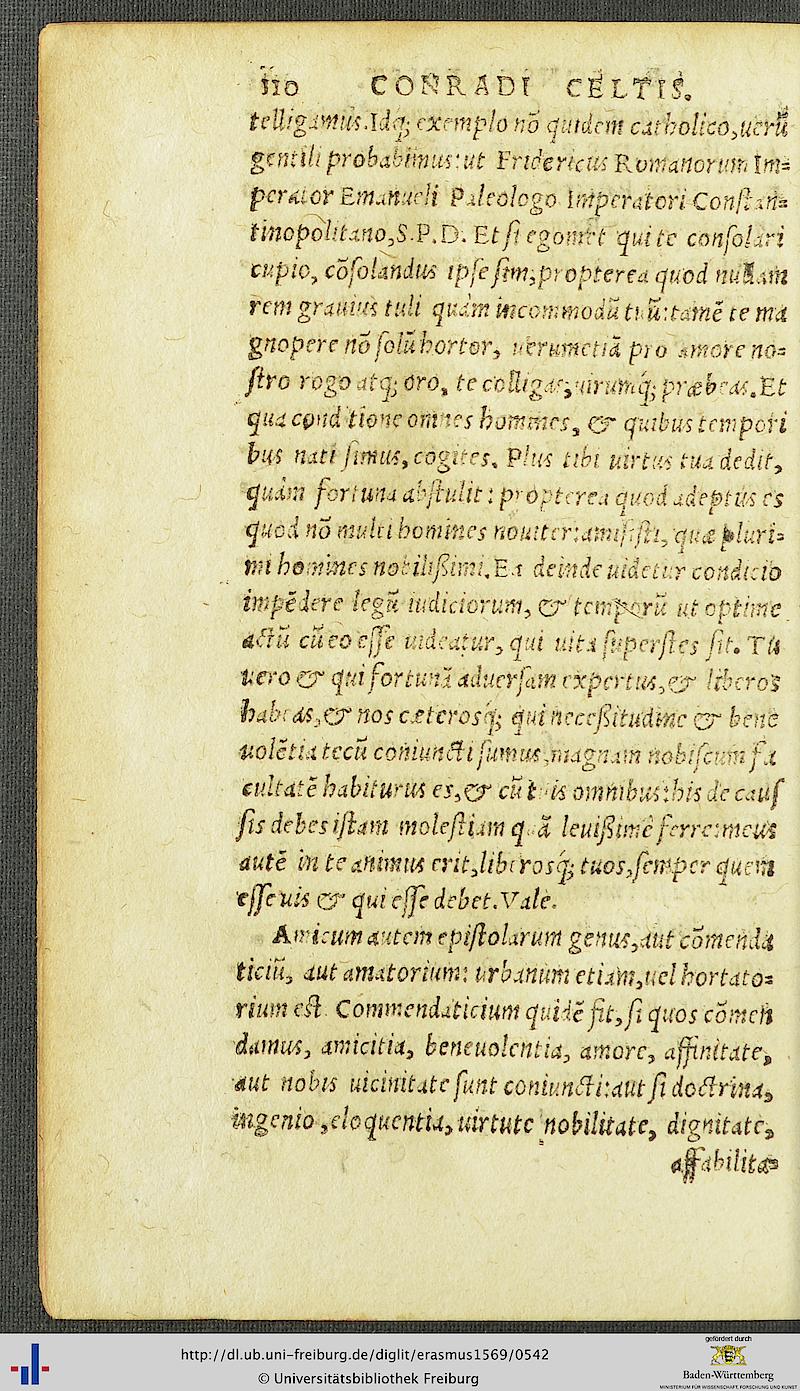 110 CONRADI CELTIS.
telligamus. Idq; exemplo nõ quidem catholico, uerũ
gentili probabimus: ut Fridericus Romanorum Im=
perator Emanueli Paleologo Imperatori Constan=
tinopolitano, S.P.D. Et si egomet qui te consolari
cupio, cõsolandus ipse sim, propterea quod nullam
rem grauius tuli quàm incommodũ tuũ: tamẽ te ma
gnopere nõ solũ hortor, uerumetiã pro amore no=
stro rogo atq; oro, te colligas, uirumq́; præbeas. Et
qua conditione omnes homines, & quibus tempori
bus nati simus, cogites. Plus tibi uirtus tua dedit,
quàm fortuna abstulit: propterea quod adeptus es
quod nõ multi homines nouiter: amisisti, quæ pluri=
mi homines nobilißimi. Ea deinde uidetur condicio
impẽdere legũ iudiciorum, & temporũ ut optime
actũ cũ eo esse uideatur, qui uita superstes sit. Tu
uero & qui fortunã aduersam expertus, & liberos
habeas, & nos cæterosq́; qui neceßitudine & bene
uolẽtia tecũ coniuncti sumus, magnam nobiscum fa
cultatẽ habiturus es, & cũ tuis omnibus: his de caus
sis debes istam molestiam quã leuißimè ferre: meus
autẽ in te animus erit, liberosq́; tuos, semper quem
esse uis & qui esse debet. Vale.
Amicum autem epistolarum genus, aut cõmenda
ticiũ, aut amatorium: urbanum etiam, uel hortato=
rium est. Commendaticium quidẽ fit, si quos cõmen
damus, amicitia, beneuolentia, amore, affinitate,
aut nobis uicinitate sunt coniuncti: aut si doctrina,
ingenio, eloquentia, uirtute nobilitate, dignitate,
affabilita=
http://dl.ub.uni-freiburg.de/diglit/erasmus1569/0542
© Universitätsbibliothek Freiburg
gefördert durch
Baden-Württemberg
MINISTERIUM FÜR WISSENSCHAFT, FORSCHUNG UND KUNST